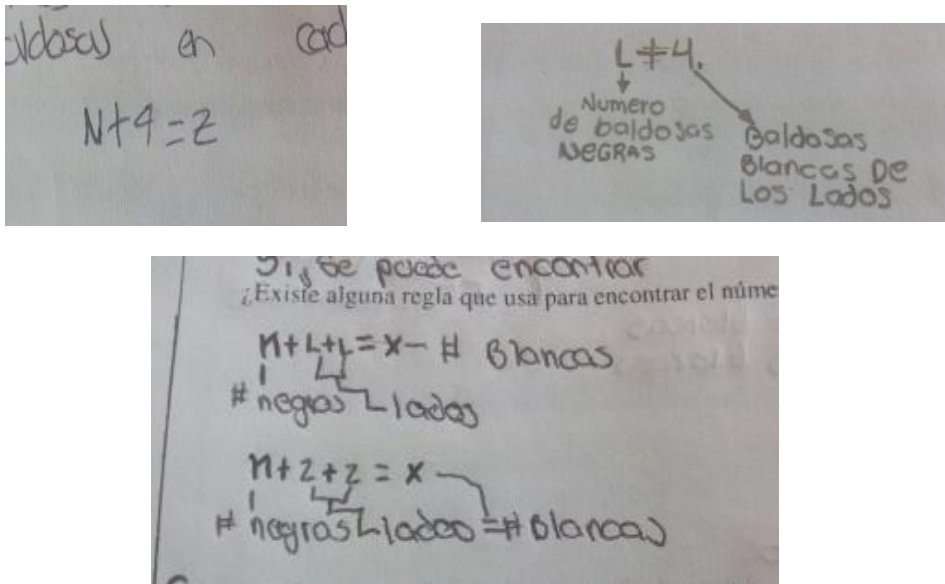 aldosas en cad
N+4=Z
L+4.
Numero
de baldosas
NEGRAS
Baldosas
Blancas De
Los Lados
Si, se puede encontrar
¿Existe alguna regla que usa para encontrar el núme
n+L+L=x- # Blancas
# negras lados
n+2+2=x
# negras lados =# Blancas